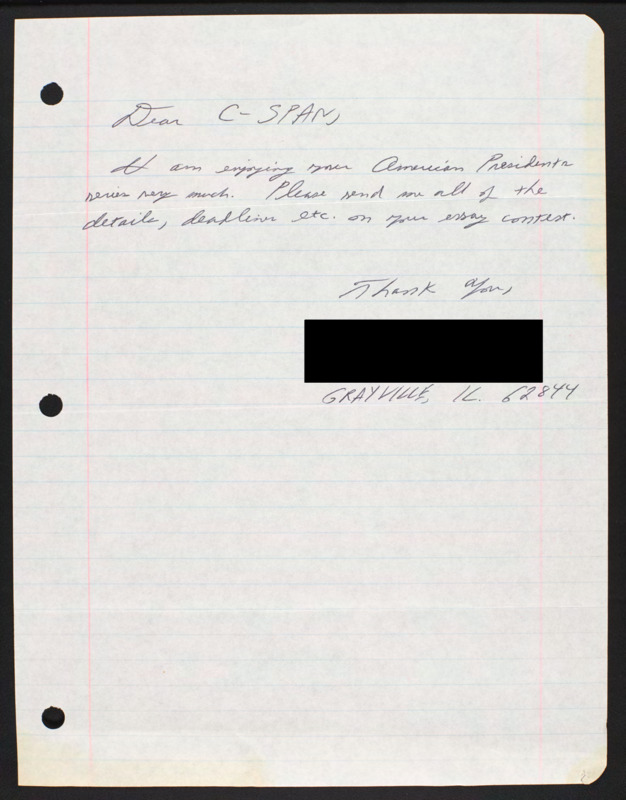 Dear C-SPAN,
I am enjoying your American Presidents
series very much. Please send me all of the
details, deadlines etc. on your essay contest.
Thank You,
GRAYVILLE, IL. 62844